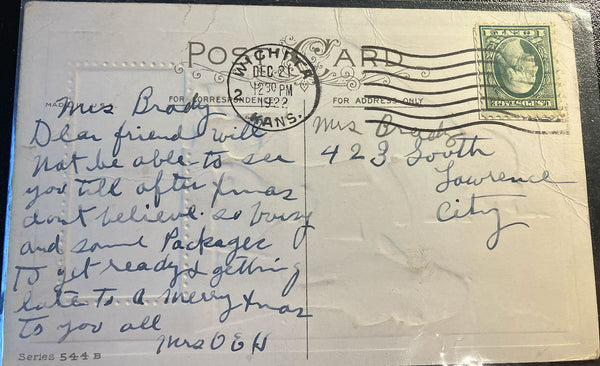 POST CARD
WICHITA
DEC 21
12 30 PM
2 1922
KANS.
MADE
FOR CORRESPONDENCE
FOR ADDRESS ONLY
Mrs Brady
Dear friend will
not be able to see
you till after Xmas
dont believe. so busy
and some Packages
to get ready & getting
late to A Merry Xmas
to you all
Mrs O E H
Mrs Brady
423 South
Lawrence
City
Series 544 B